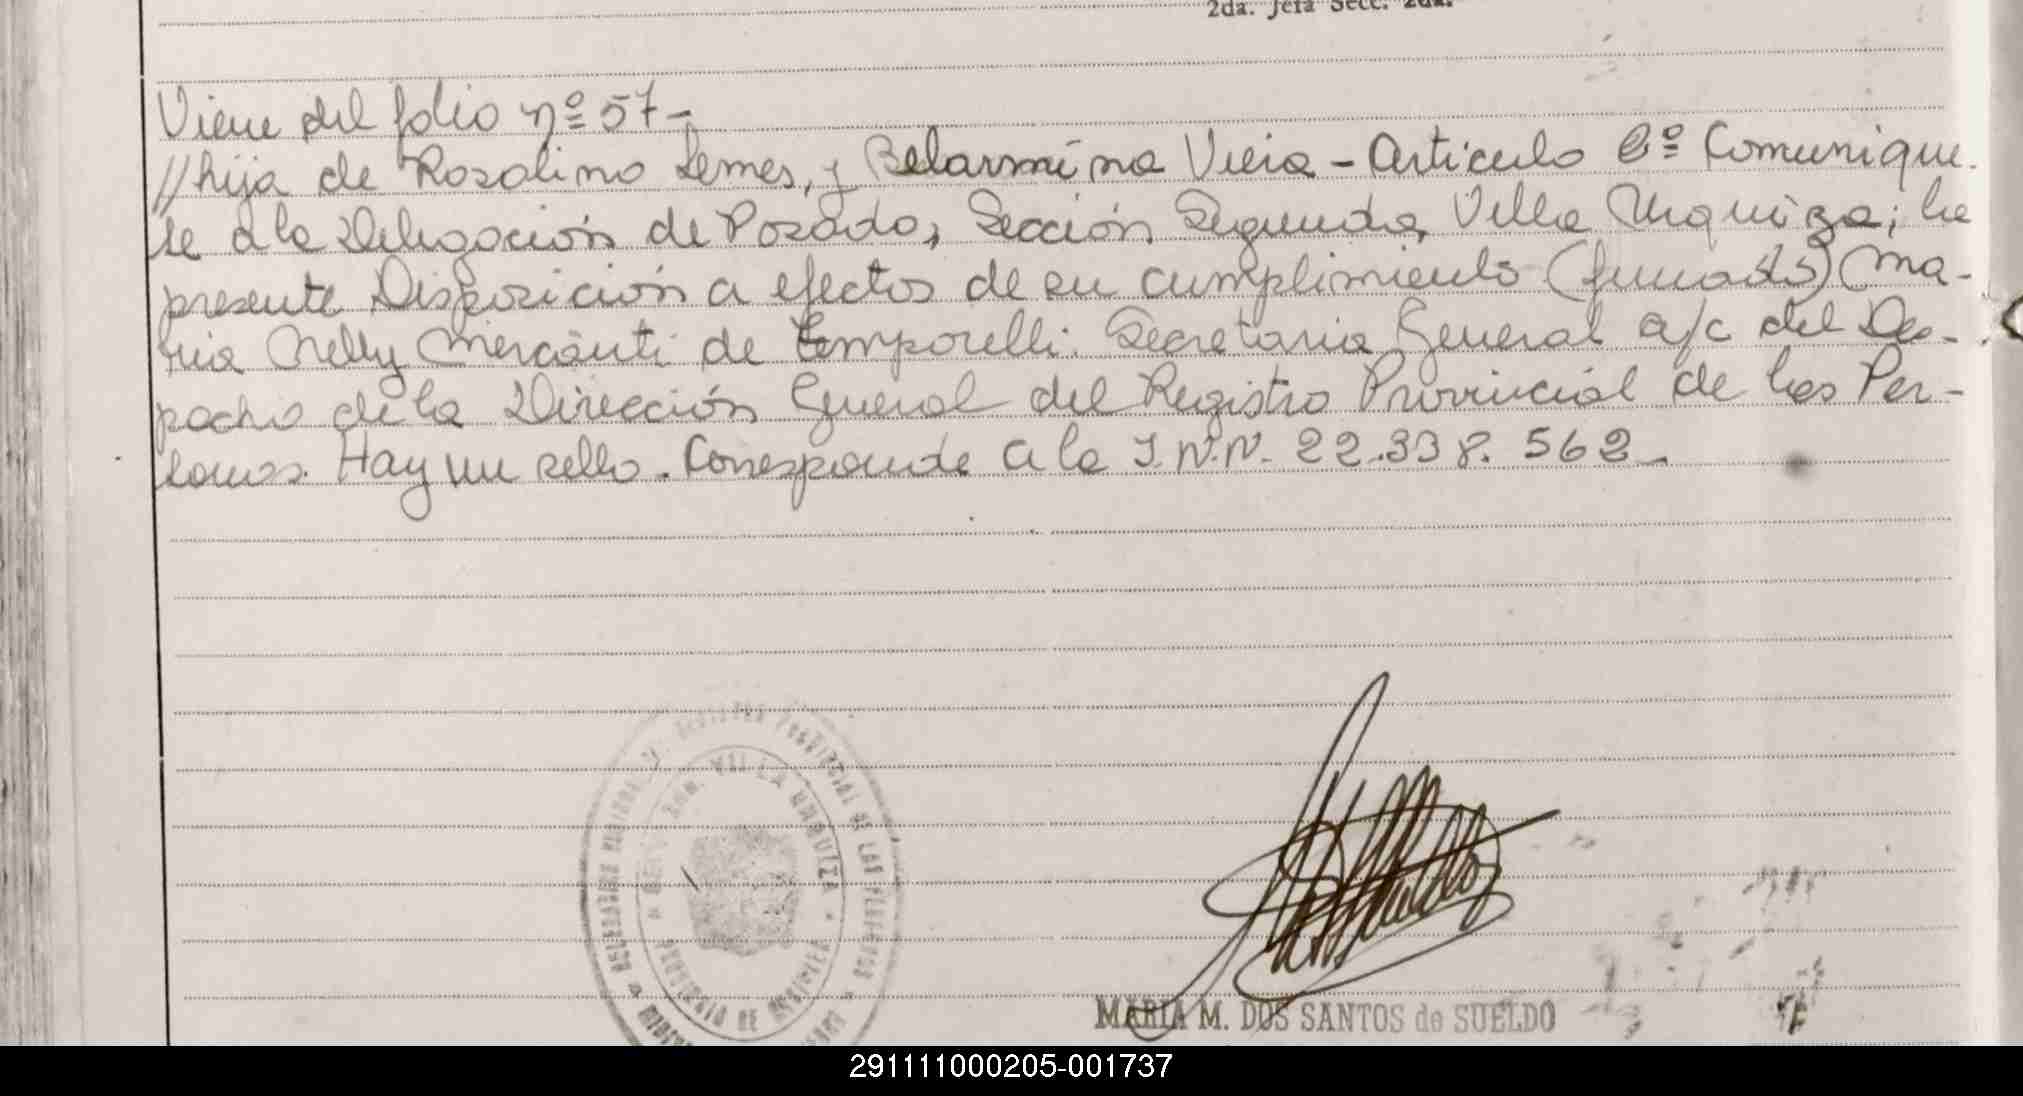 2da. Jefa Secc. 2da.
Viene del folio nº 57-
//hija de Rosalino Lemes, y Belarmina Vieia - Articulo 2º Comunique-
se a la Delegación de Posadas, Sección Segunda, Villa Urquiza; la
presente Disposición a efectos de su cumplimiento (firmado) Ma-
ria Nelly Mercanti de Temporelli. Secretaria General a/c del Des-
pacho de la Dirección General del Registro Provincial de las Per-
sonas. Hay un sello. Corresponde a la I.N.N. 22.338.562-
REGISTRO PROVINCIAL DE LAS PERSONAS
VILLA URQUIZA
PROVINCIA DE MISIONES
MARIA M. DOS SANTOS de SUELDO
291111000205-001737